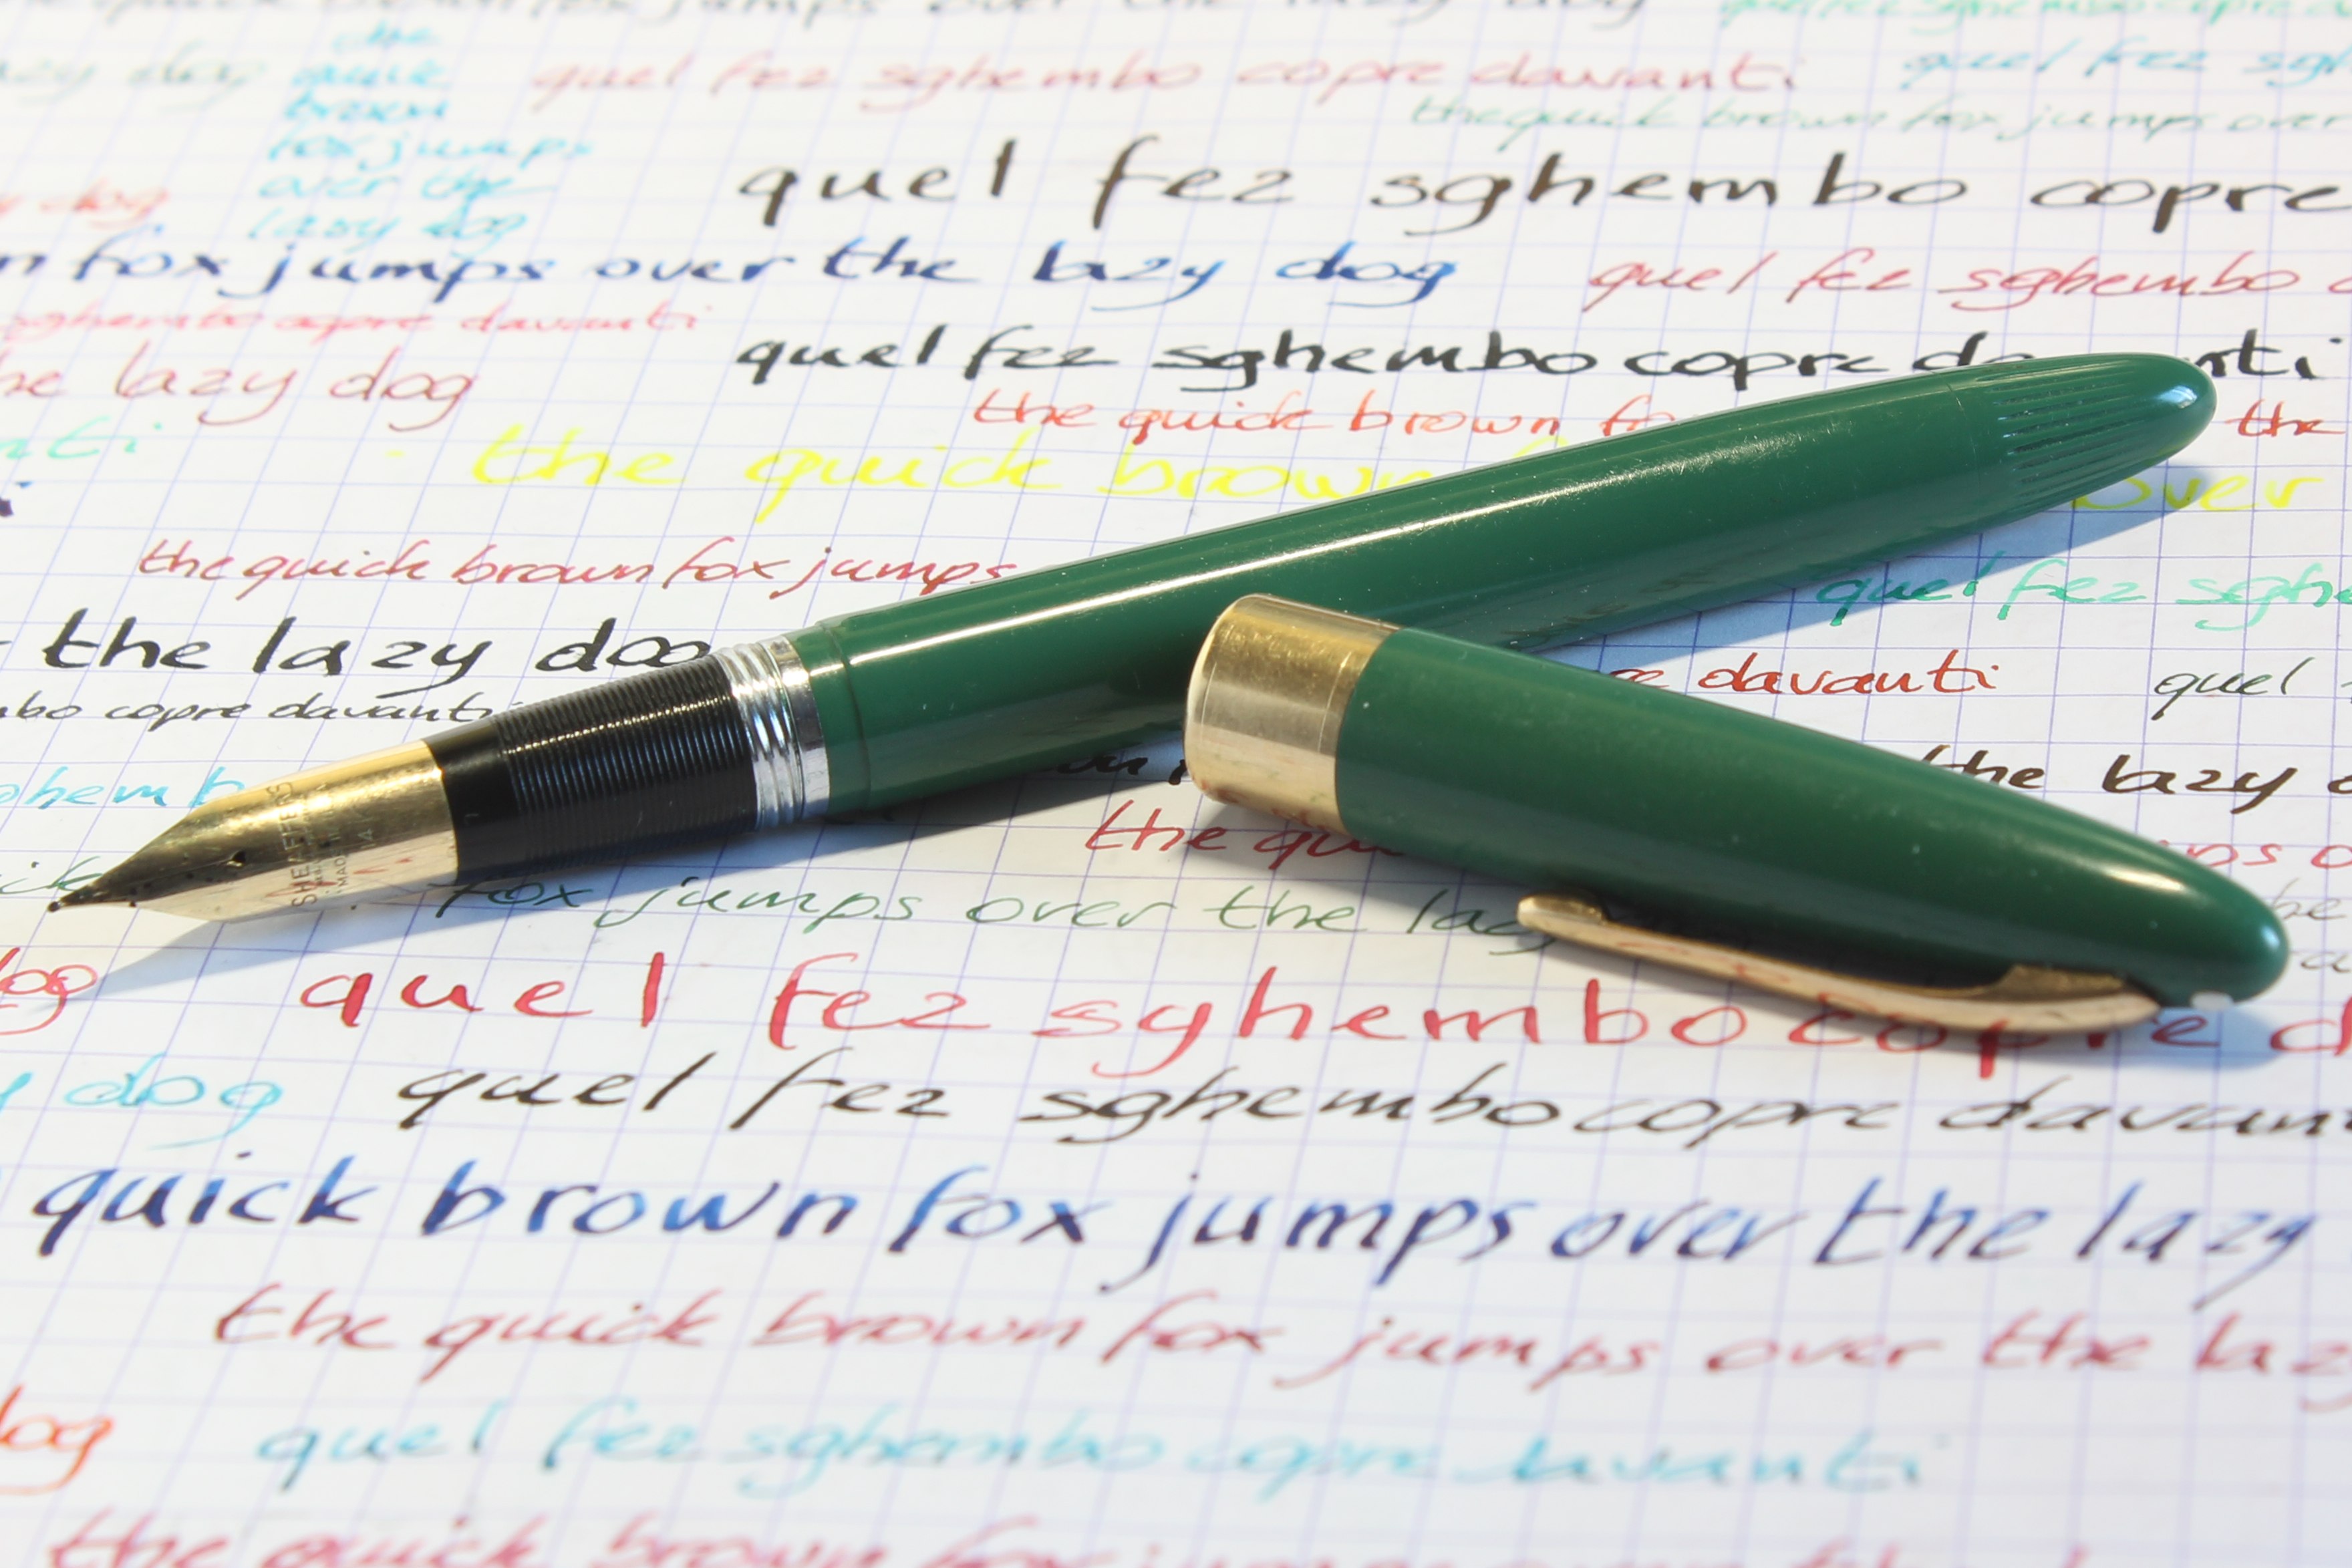 quel fez sghembo copre davanti
quel fez
zy dog
the
quick
brown
fox jumps
over the
lazy dog
the quick brown fox jumps over
quel fez sghembo copre
dog
n fox jumps over the lazy dog
quel fez sghembo
sghembo copre davanti
quel fez sghembo copre da nti
he lazy dog
the quick brown fo
the
nti
the quick brown
over
the quick brown fox jumps
quel fez sghe
the lazy dog
davanti
quel
mbo copre davanti
the lazy
ghemb
the qu
ps o
SHEAFFER'S
MADE
14
ick
fox jumps over the laz
dog
quel fez sghembo copre d
y dog
quel fez sghembo copre davan
quick brown fox jumps over the lazy
the quick brown fox jumps over the laz
dog
quel fez sghembo copre davanti
the quick brown fox jumps over the l